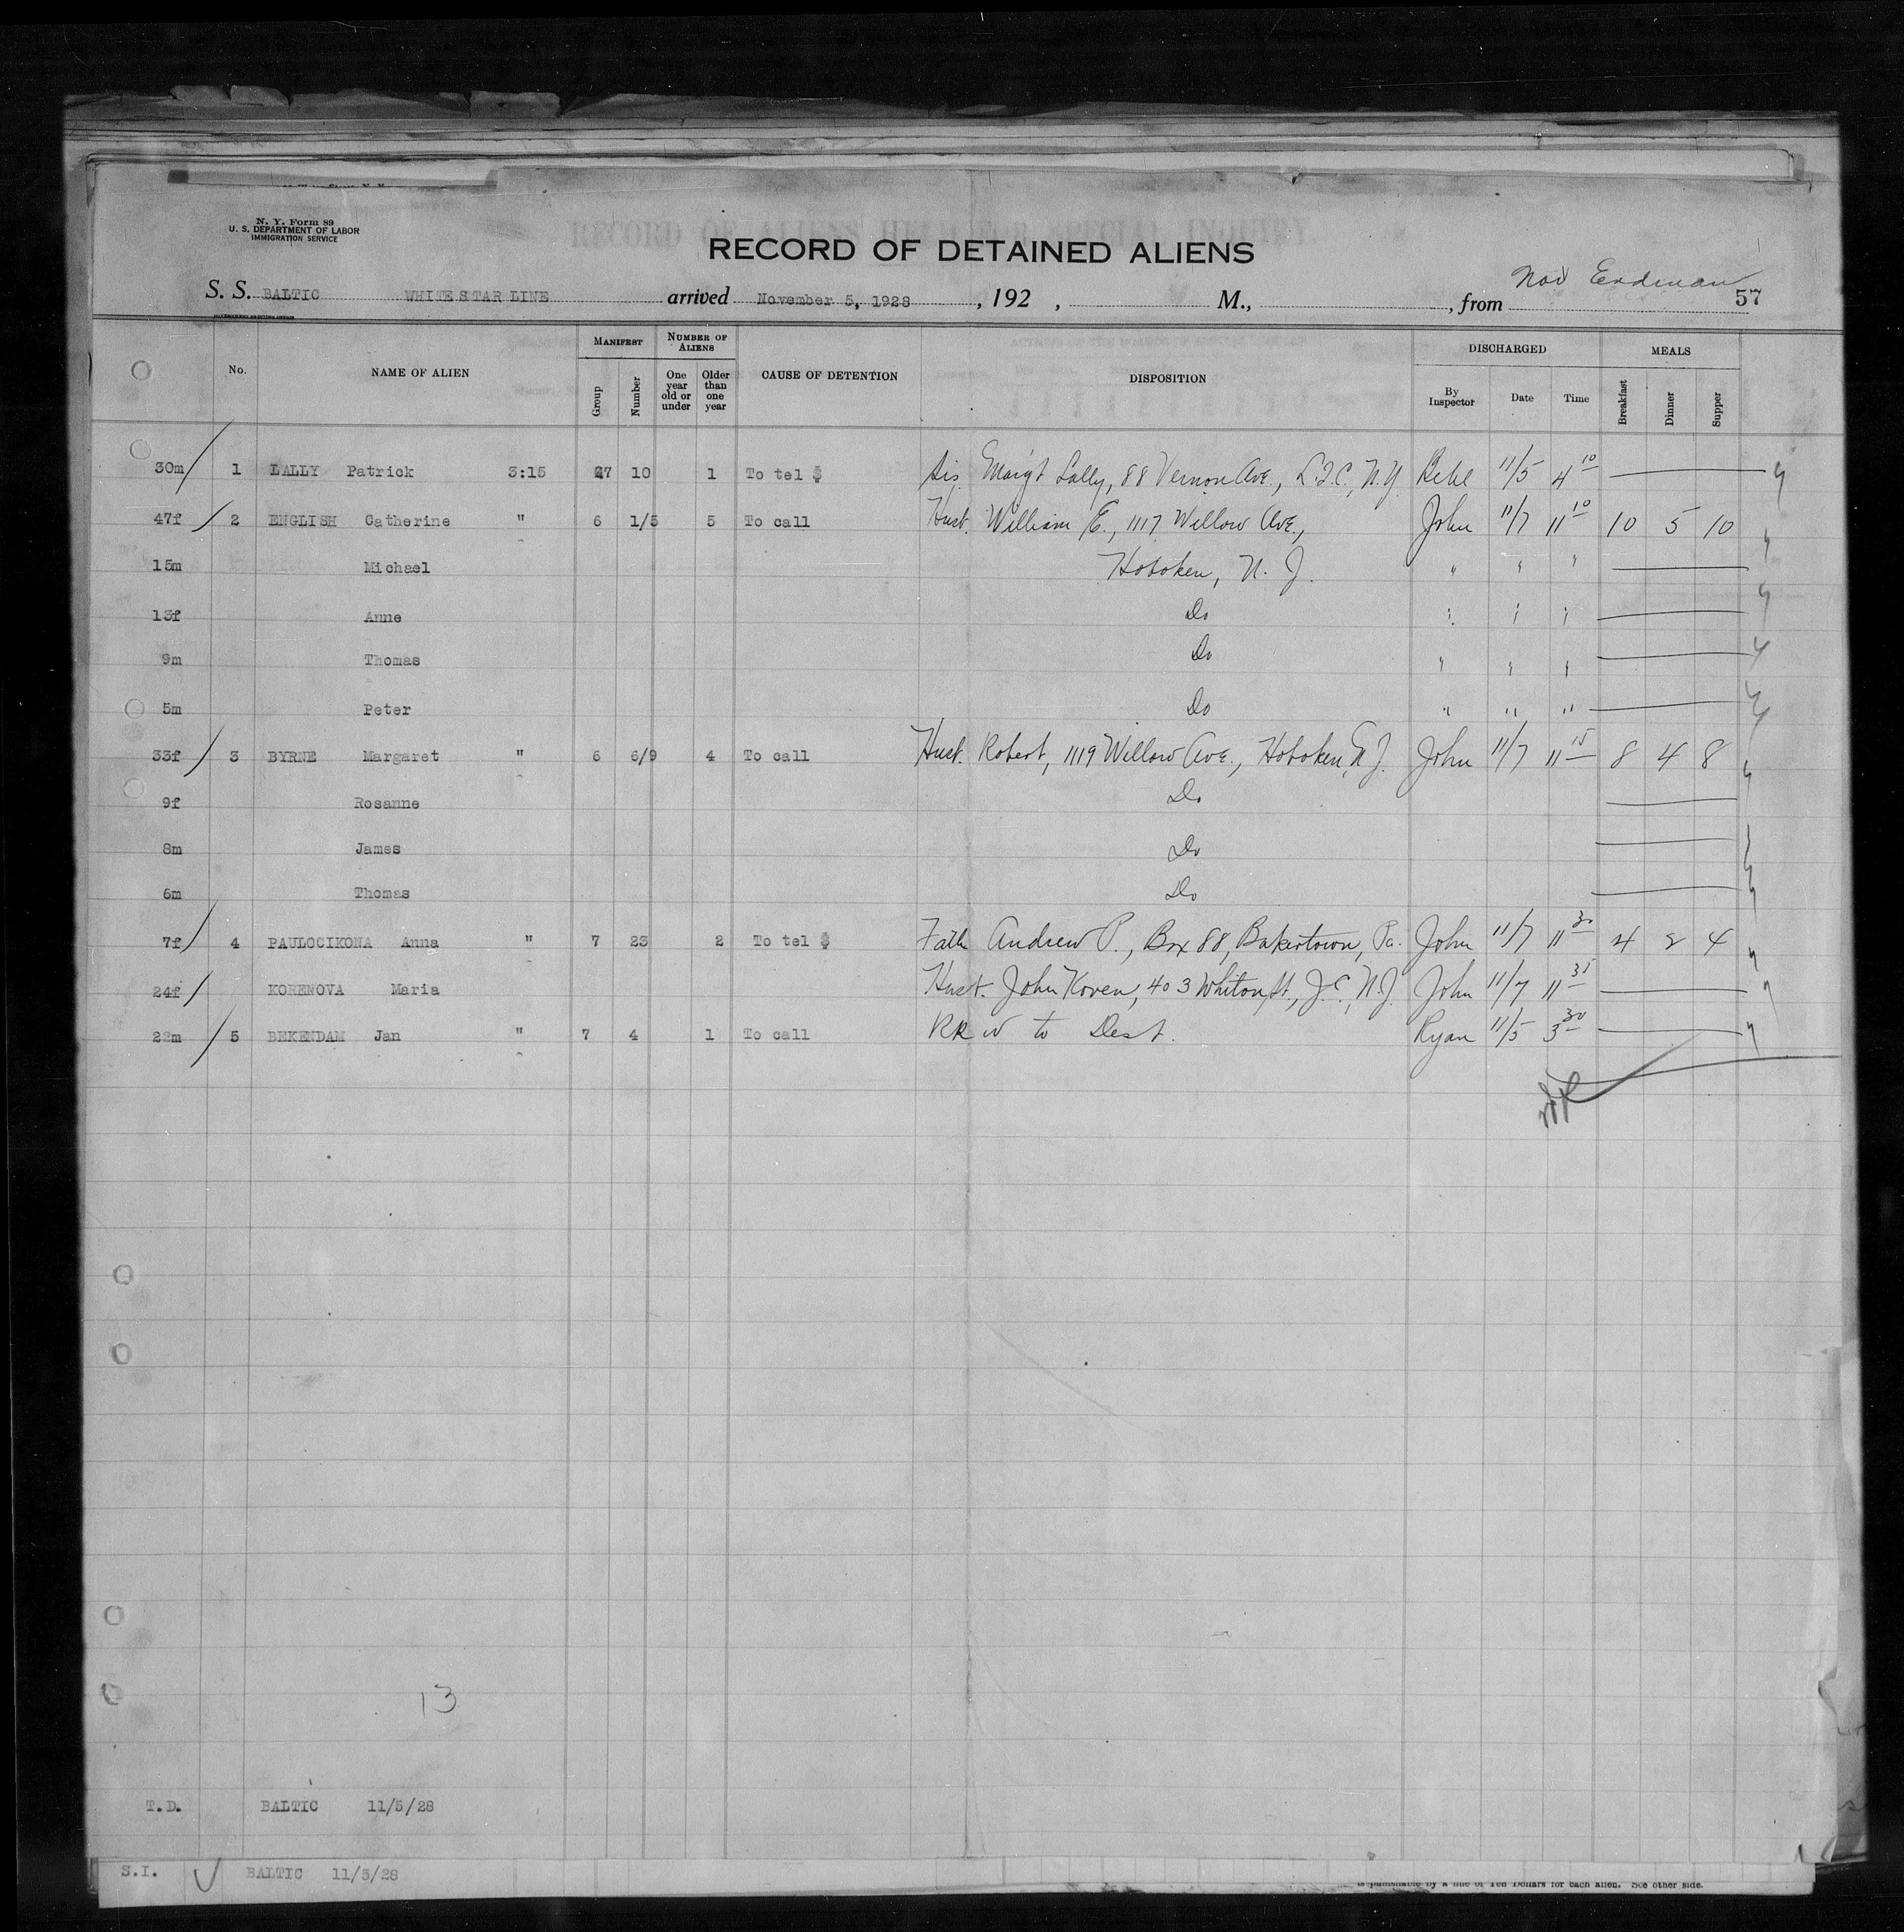 N. Y. Form 89
U. S. DEPARTMENT OF LABOR
IMMIGRATION SERVICE
RECORD OF DETAINED ALIENS
S. S. BALTIC WHITE STAR LINE arrived November 5, 1928, 192 , M., , from Erdman 57
No. NAME OF ALIEN MANIFEST Group Number NUMBER OF ALIENS One year old or under Older than one year CAUSE OF DETENTION DISPOSITION DISCHARGED By Inspector Date Time MEALS Breakfast Dinner Supper
30m 1 LALLY Patrick 3:15 27 10 1 To tel $ Sis. Marg't Lally, 88 Vernon Ave., L.I.C., N.Y. 11/5 4 10
47f 2 ENGLISH Catherine " 6 1/5 5 To call Husb. William E., 1117 Willow Ave., John 11/7 11 10 10 5 10
15m Michael Hoboken, N. J. " " "
13f Anne Do " " "
9m Thomas Do " " "
5m Peter Do " " "
33f 3 BYRNE Margaret " 6 6/9 4 To call Husb. Robert, 1119 Willow Ave., Hoboken, N.J. John 11/7 11 15 8 4 8
9f Rosanne Do
8m James Do
6m Thomas Do
7f 4 PAULOCIKONA Anna " 7 23 2 To tel $ Fath Andrew P., Box 88, Bakertown, Pa. John 11/7 11 30 4 2 4
24f KORENOVA Maria Husb. John Koren, 403 Whiton St., J.C., N.J. John 11/7 11 35
22m 5 BEKENDAM Jan " 7 4 1 To call RR to Dest. Ryan 11/5 3 30
13
T.D. BALTIC 11/5/28
S.I. BALTIC 11/5/28
is punishable by a fine of Ten Dollars for each alien. See other side.